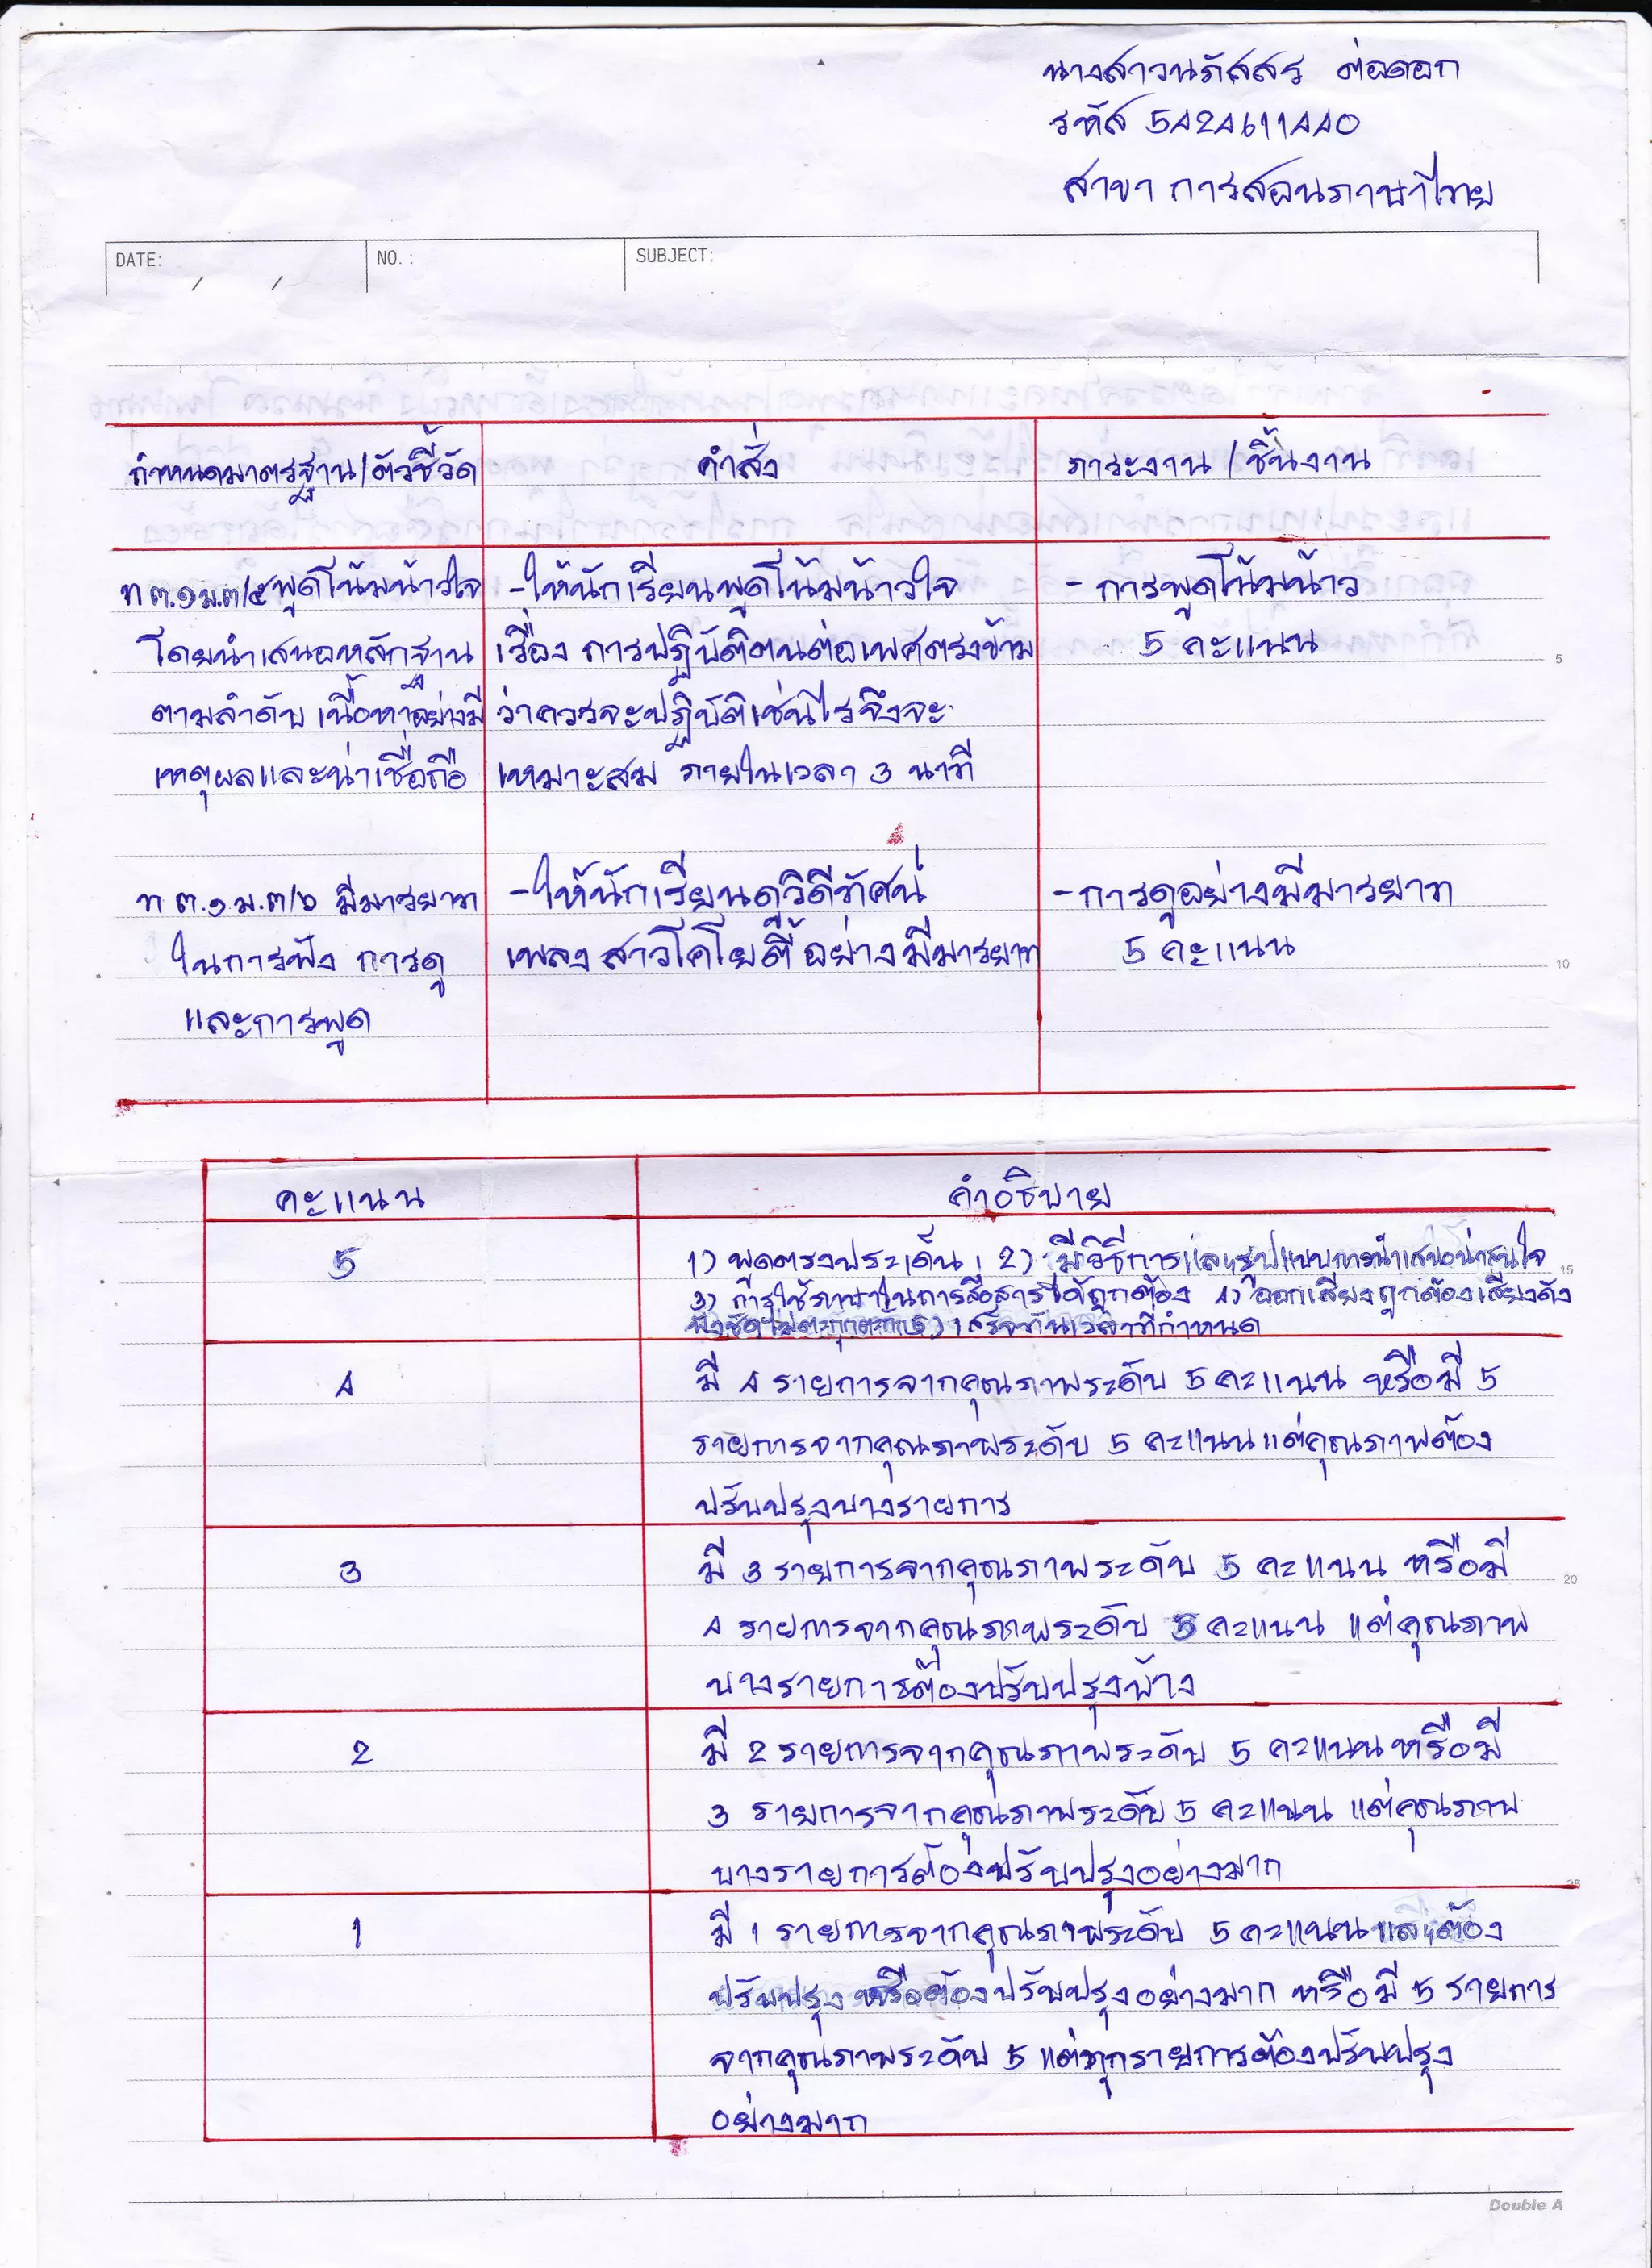 นางสาวนภัสสร ต่อดอก
รหัส 5424611440
สาขา การสอนภาษาไทย
DATE: / / NO.: SUBJECT:
กำหนดมาตรฐาน/ตัวชี้วัด คำสั่ง ภาระงาน/ชิ้นงาน
ท ๓.๑ ม.๓/๕ พูดโน้มน้าวใจ -ให้นักเรียนพูดโน้มน้าวใจ - การพูดโน้มน้าว
โดยนำเสนอหลักฐาน เรื่อง การปฏิบัติตนต่อเพศตรงข้าม 5 คะแนน
5
ตามลำดับเนื้อหาอย่างมี ว่าควรจะปฏิบัติเช่นไรจึงจะ
เหตุผลและน่าเชื่อถือ เหมาะสม ภายในเวลา 3 นาที
ท ๓.๑ ม.๓/๖ มีมารยาท -ให้นักเรียนดูวิดีทัศน์ -การดูอย่างมีมารยาท
ในการฟัง การดู เพลงสาวโคโยตี้ อย่างมีมารยาท 5 คะแนน
10
และการพูด
คะแนน คำอธิบาย
5 1) พูดตรงประเด็น 2) มีวิธีการและรูปแบบการนำเสนอน่าสนใจ
15
3) การใช้ภาษาในการสื่อสารได้ถูกต้อง 4) ออกเสียงถูกต้องเสียงดัง
ฟังชัดไม่ตะกุกตะกัก 5) เสร็จทันเวลาที่กำหนด
4 มี 4 รายการจากคุณภาพระดับ 5 คะแนน หรือมี 5
รายการจากคุณภาพระดับ 5 คะแนนแต่คุณภาพต้อง
ปรับปรุงบางรายการ
3 มี 3 รายการจากคุณภาพระดับ 5 คะแนน หรือมี
20
4 รายการจากคุณภาพระดับ 5 คะแนน แต่คุณภาพ
บางรายการต้องปรับปรุงบ้าง
2 มี 2 รายการจากคุณภาพระดับ 5 คะแนนหรือมี
3 รายการจากคุณภาพระดับ 5 คะแนน แต่คุณภาพ
บางรายการต้องปรับปรุงอย่างมาก
25
1 มี 1 รายการจากคุณภาพระดับ 5 คะแนนและต้อง
ปรับปรุง หรือต้องปรับปรุงอย่างมาก หรือมี 5 รายการ
จากคุณภาพระดับ 5 แต่ทุกรายการต้องปรับปรุง
อย่างมาก
Double A